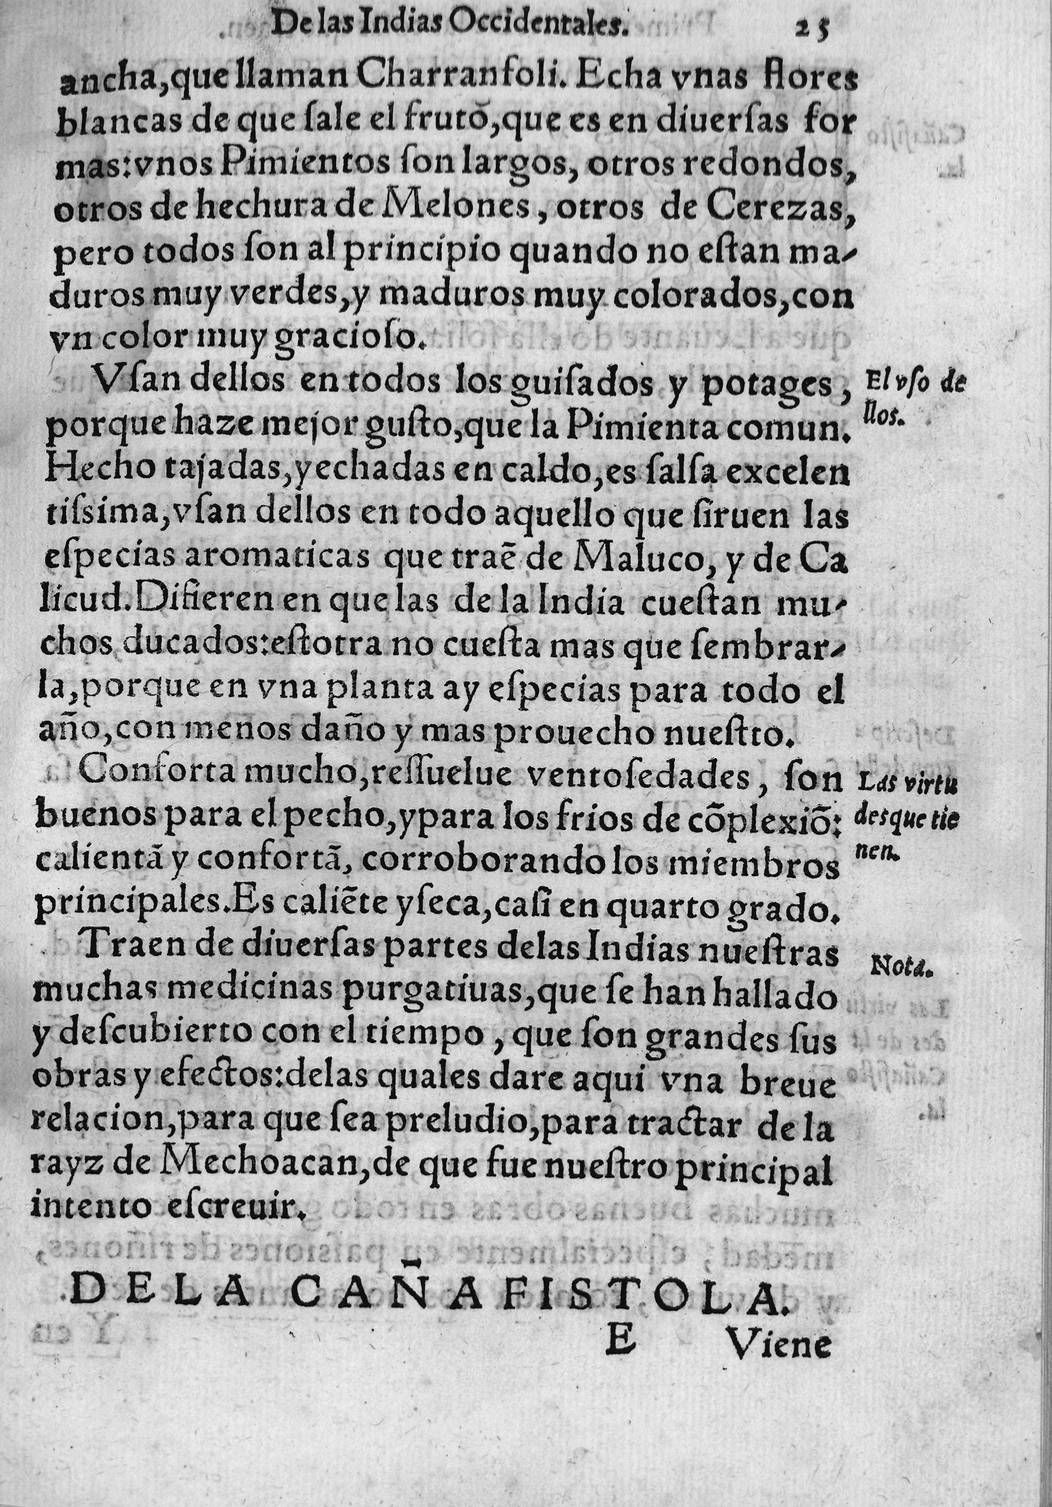 De las Indias Occidentales. 25
ancha,que llaman Charranfoli. Echa vnas flores
blancas de que ſale el frutõ,que es en diuerſas for
mas:vnos Pimientos ſon largos, otros redondos,
otros de hechura de Melones, otros de Cerezas,
pero todos ſon al principio quando no eſtan ma-
duros muy verdes,y maduros muy colorados,con
vn color muy gracioſo.
Vſan dellos en todos los guiſados y potages,
El vſo de
llos.
porque haze mejor guſto,que la Pimienta comun.
Hecho tajadas,y echadas en caldo,es ſalſa excelen
tiſsima,vſan dellos en todo aquello que ſiruen las
eſpecias aromaticas que traẽ de Maluco, y de Ca
licud.Difieren en que las de la India cueſtan mu-
chos ducados:eſtotra no cueſta mas que ſembrar-
la,porque en vna planta ay eſpecias para todo el
año,con menos daño y mas prouecho nueſtro.
Conforta mucho,reſſuelue ventoſedades, ſon
Las virtu
buenos para el pecho,y para los frios de cõplexiõ:
des que tie
calientã y confortã, corroborando los miembros
nen.
principales.Es caliẽte y ſeca,caſi en quarto grado.
Traen de diuerſas partes delas Indias nueſtras
Nota.
muchas medicinas purgatiuas,que ſe han hallado
y deſcubierto con el tiempo, que ſon grandes ſus
obras y efectos:delas quales dare aqui vna breue
relacion,para que ſea preludio,para tractar de la
rayz de Mechoacan,de que fue nueſtro principal
intento eſcreuir.
DELA CAÑAFISTOLA.
E Viene